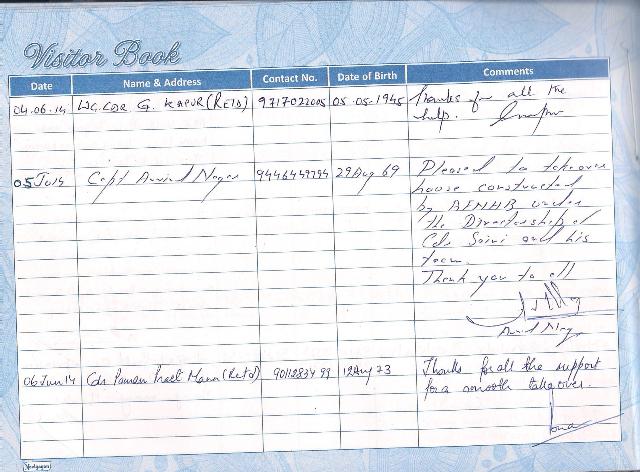 Visitor Book
Date Name & Address Contact No. Date of Birth Comments
04.06.14 WG.CDR G. KAPUR (RETD) 9717022005 05.05.1945 Thanks for all the
help.
05 Ju14 Capt Arvind Nagar 29 Aug 69 Pleased to takeover
house constructed
by AFNHB under
the Directorship of
Cdr Saini and his
team.
Thank you to all
06 Jun 14 Cdr Paman Preet Mann (Retd) 12 Aug 73 Thanks for all the support
for a smooth takeover.